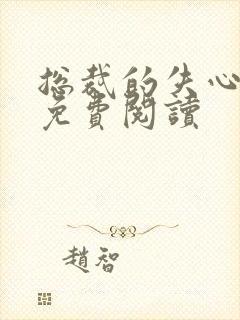 总裁的失心
免費閱讀
趙智